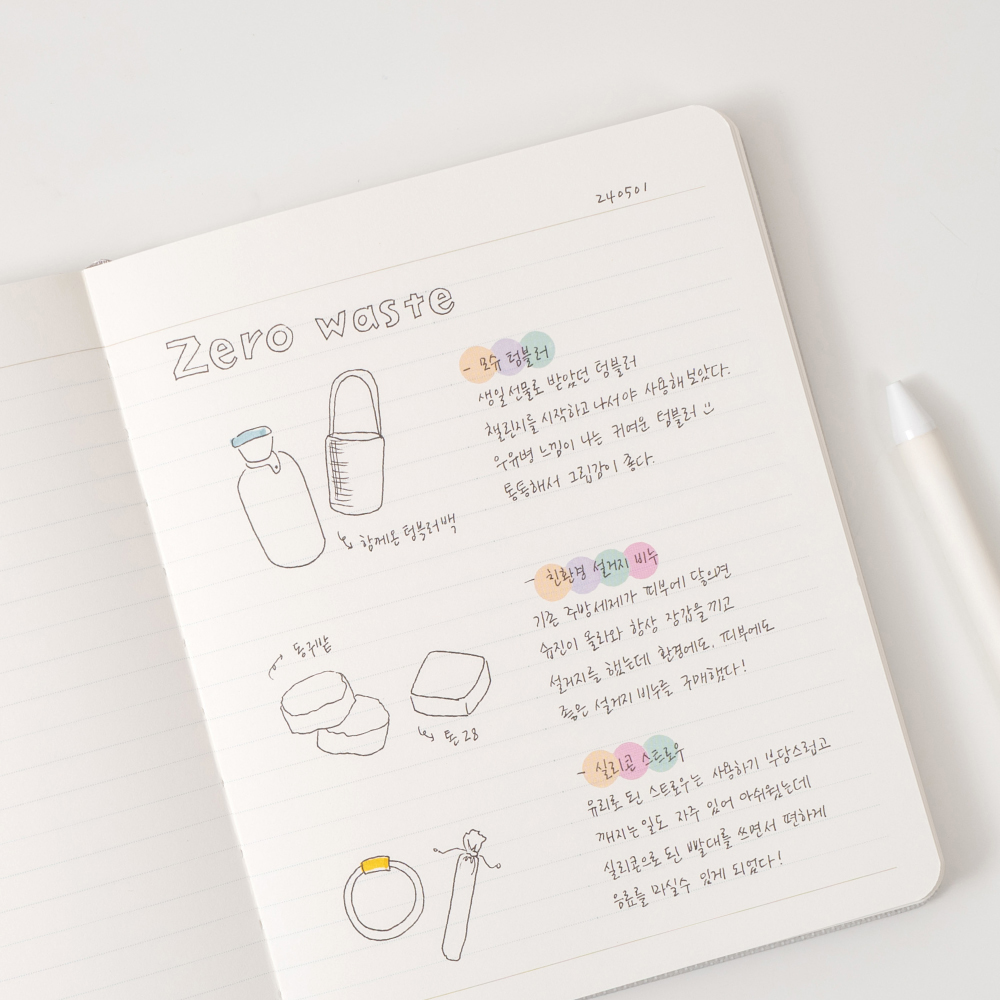 240501
Zero waste
- 모슈 텀블러
생일 선물로 받았던 텀블러
챌린지를 시작하고 나서야 사용해 보았다.
우유병 느낌이 나는 귀여운 텀블러
통통해서 그립감이 좋다.
함께온 텀블러 백
- 친환경 설거지 비누
기존 주방세제가 피부에 닿으면
습진이 올라와 항상 장갑을 끼고
설거지를 했는데 환경에도, 피부에도
좋은 설거지 비누를 구매했다!
동구밭
톤28
- 실리콘 스트로우
유리로 된 스트로우는 사용하기 부담스럽고
깨지는 일도 자주 있어 아쉬웠는데
실리콘으로 된 빨대를 쓰면서 편하게
음료를 마실수 있게 되었다!